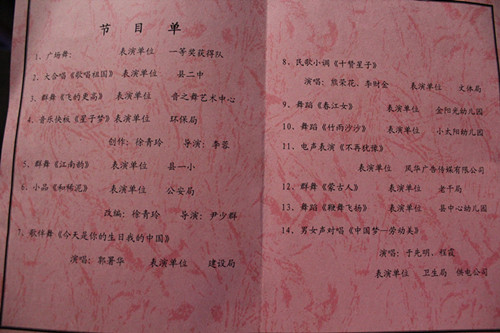 节目单
1、广场舞: 表演单位 一等奖获得队
2、大合唱《歌唱祖国》 表演单位 县二中
3、群舞《飞的更高》 表演单位 音之舞艺术中心
4、音乐快板《星子梦》 表演单位 环保局
创作:徐青玲 导演:李蓉
5、群舞《江南韵》 表演单位 县一小
6、小品《和稀泥》 表演单位 公安局
改编:徐青玲 导演:尹少群
7、歌伴舞《今天是你的生日我的中国》
演唱:郭署华 表演单位 建设局
8、民歌小调《十赞星子》
演唱:熊荣花、李财金 表演单位 文体局
9、舞蹈《春江女》 表演单位 金阳光幼儿园
10、舞蹈《竹雨沙沙》 表演单位 小太阳幼儿园
11、电声表演《不再犹豫》
表演单位 风华广告传媒有限公司
12、群舞《蒙古人》 表演单位 老干局
13、舞蹈《鞭舞飞扬》 表演单位 县中心幼儿园
14、男女声对唱《中国梦—劳动美》
演唱:于先明、程霞
表演单位 卫生局 供电公司